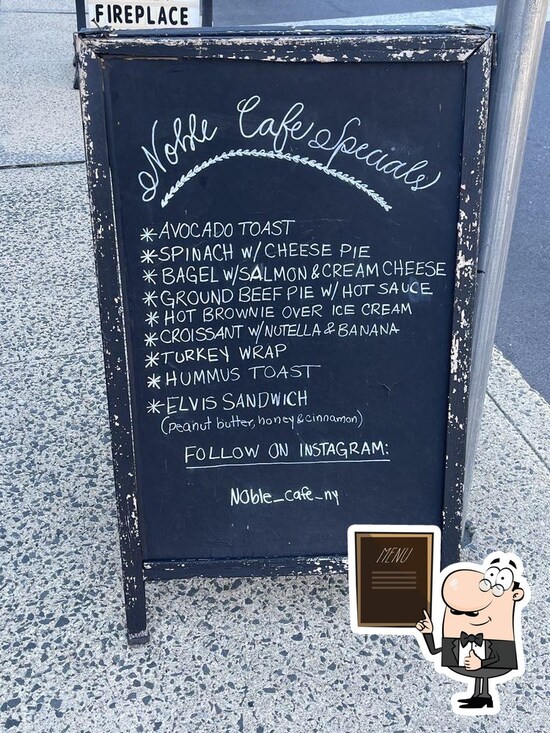 FIREPLACE
Noble Cafe Specials
* AVOCADO TOAST
* SPINACH W/ CHEESE PIE
* BAGEL W/SALMON & CREAM CHEESE
* GROUND BEEF PIE W/ HOT SAUCE
* HOT BROWNIE OVER ICE CREAM
* CROISSANT W/NUTELLA & BANANA
* TURKEY WRAP
* HUMMUS TOAST
* ELVIS SANDWICH
(peanut butter, honey & cinnamon)
FOLLOW ON INSTAGRAM:
Noble_cafe_ny
MENU